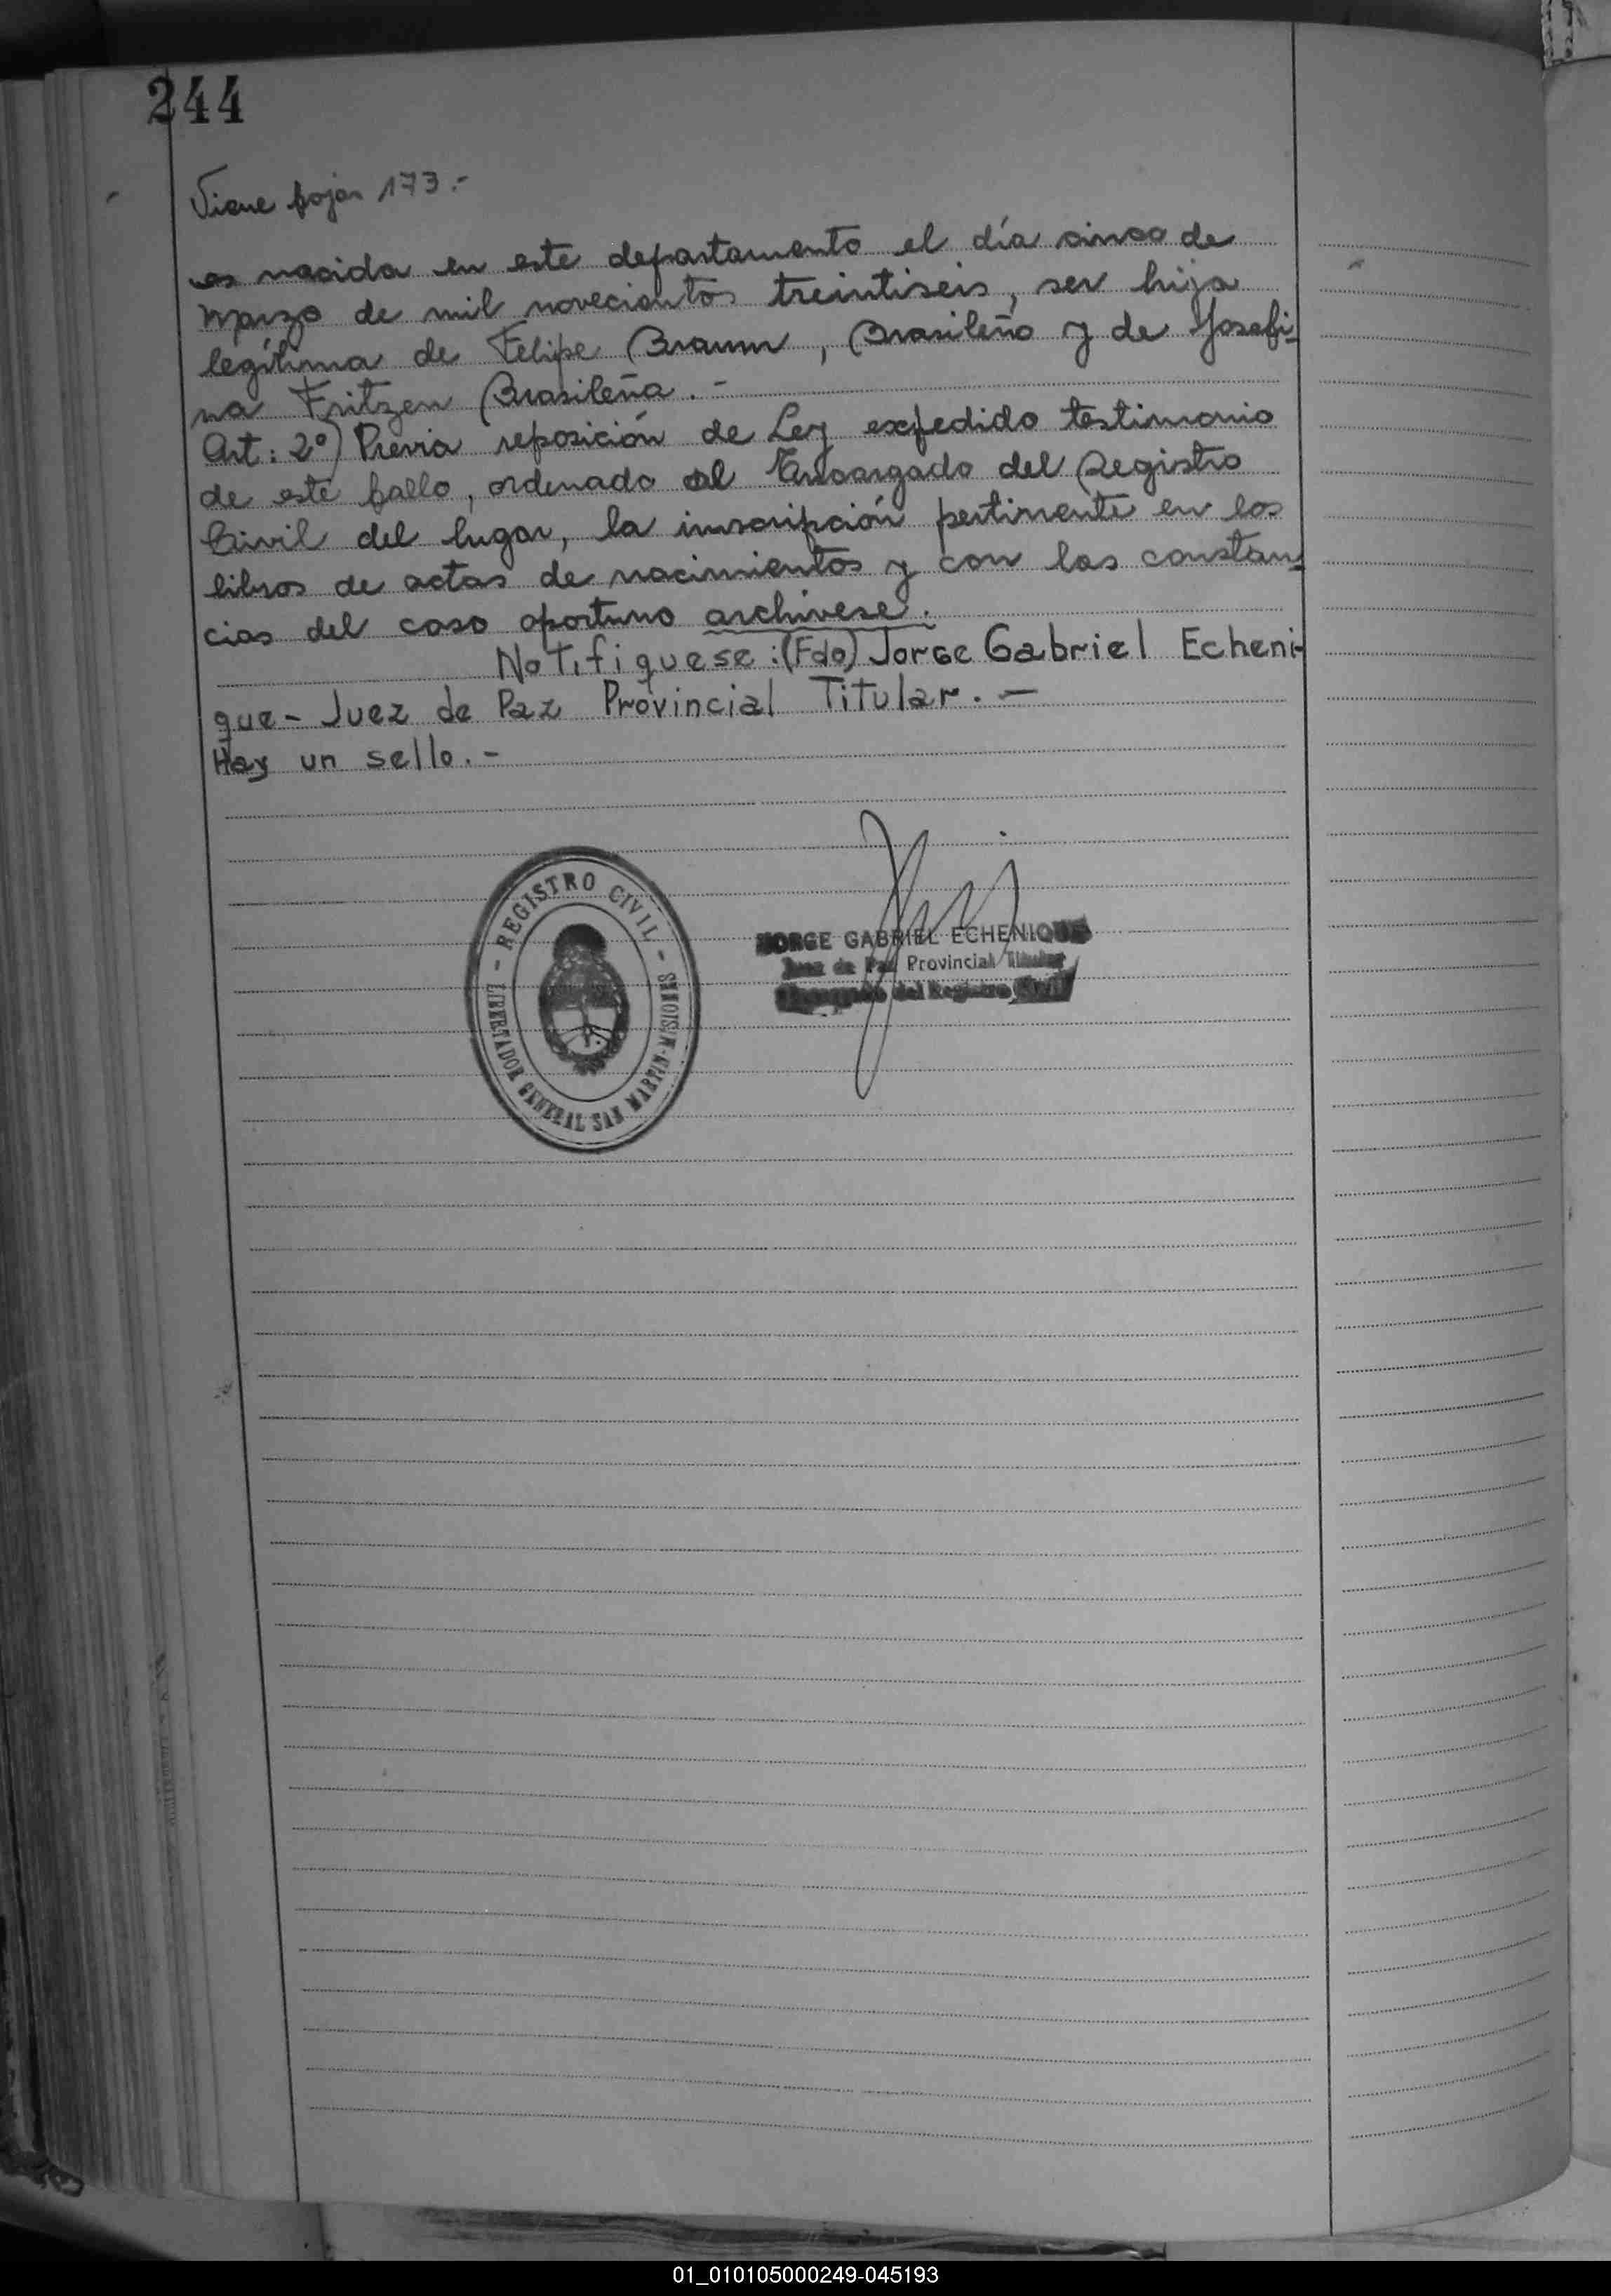 244
Viene fojas 173.-
es nacida en este departamento el día cinco de
Marzo de mil novecientos treintiseis, ser hija
legítima de Felipe Braun, Brasileño y de Josefi-
na Fritzen Brasileña.-
Art: 2º) Previa reposición de Ley expedido testimonio
de este fallo, ordenado al Encargado del Registro
Civil del lugar, la inscripción pertinente en los
libros de actas de nacimientos y con las constan-
cias del caso oportuno archivese.
Notifiquese:(Fdo) Jorge Gabriel Echeni-
que- Juez de Paz Provincial Titular.-
Hay un sello.-
- REGISTRO CIVIL -
LIBERTADOR GENERAL SAN MARTIN-MISIONES
JORGE GABRIEL ECHENIQUE
Juez de Paz Provincial Titular
Encargado del Registro Civil
01_010105000249-045193